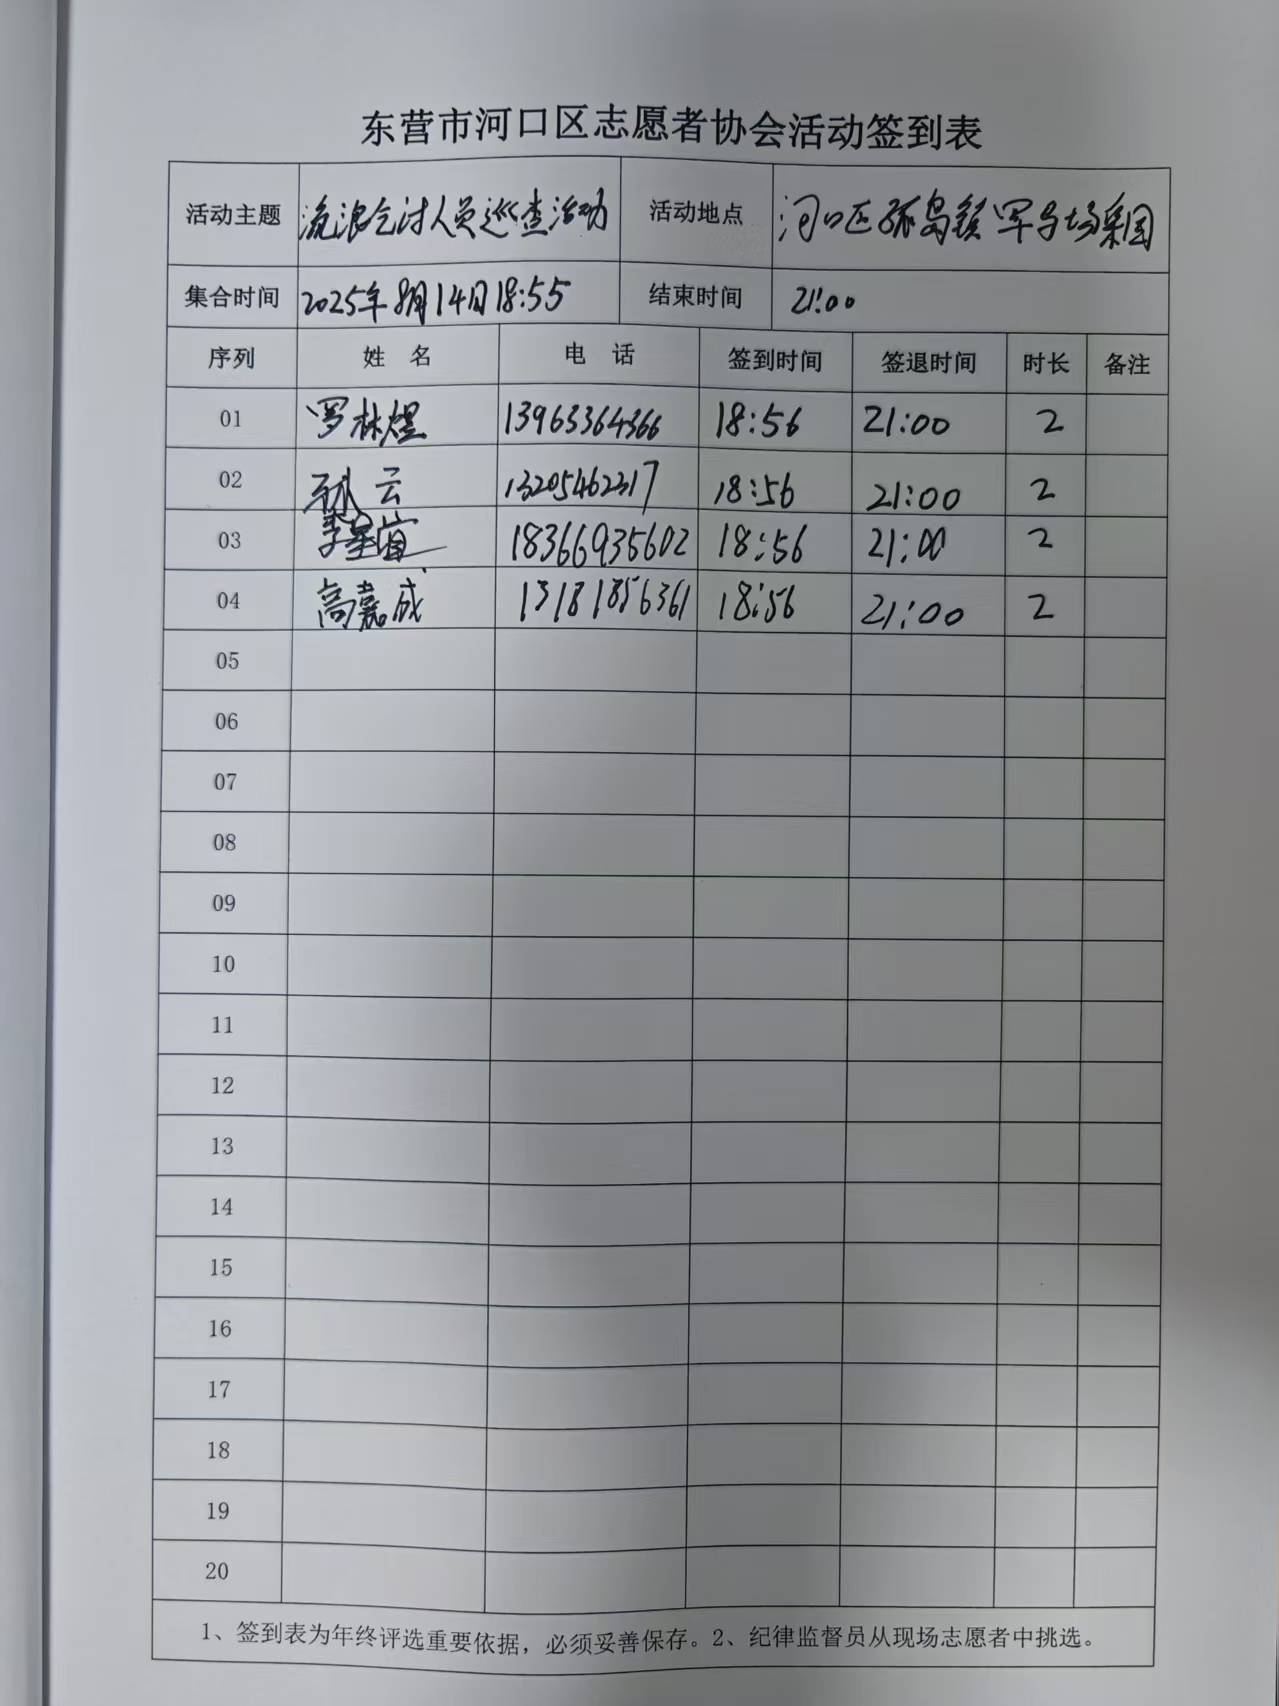 东营市河口区志愿者协会活动签到表
活动主题 流浪乞讨人员巡查活动 活动地点 河口区孤岛镇军马场果园
集合时间 2025年8月14日18:55 结束时间 21:00
序列 姓名 电话 签到时间 签退时间 时长 备注
01 罗林煜 13963364366 18:56 21:00 2
02 孙云 13205462317 18:56 21:00 2
03 李星宜 18366935602 18:56 21:00 2
04 高嘉成 13181856361 18:56 21:00 2
05
06
07
08
09
10
11
12
13
14
15
16
17
18
19
20
1、签到表为年终评选重要依据，必须妥善保存。2、纪律监督员从现场志愿者中挑选。